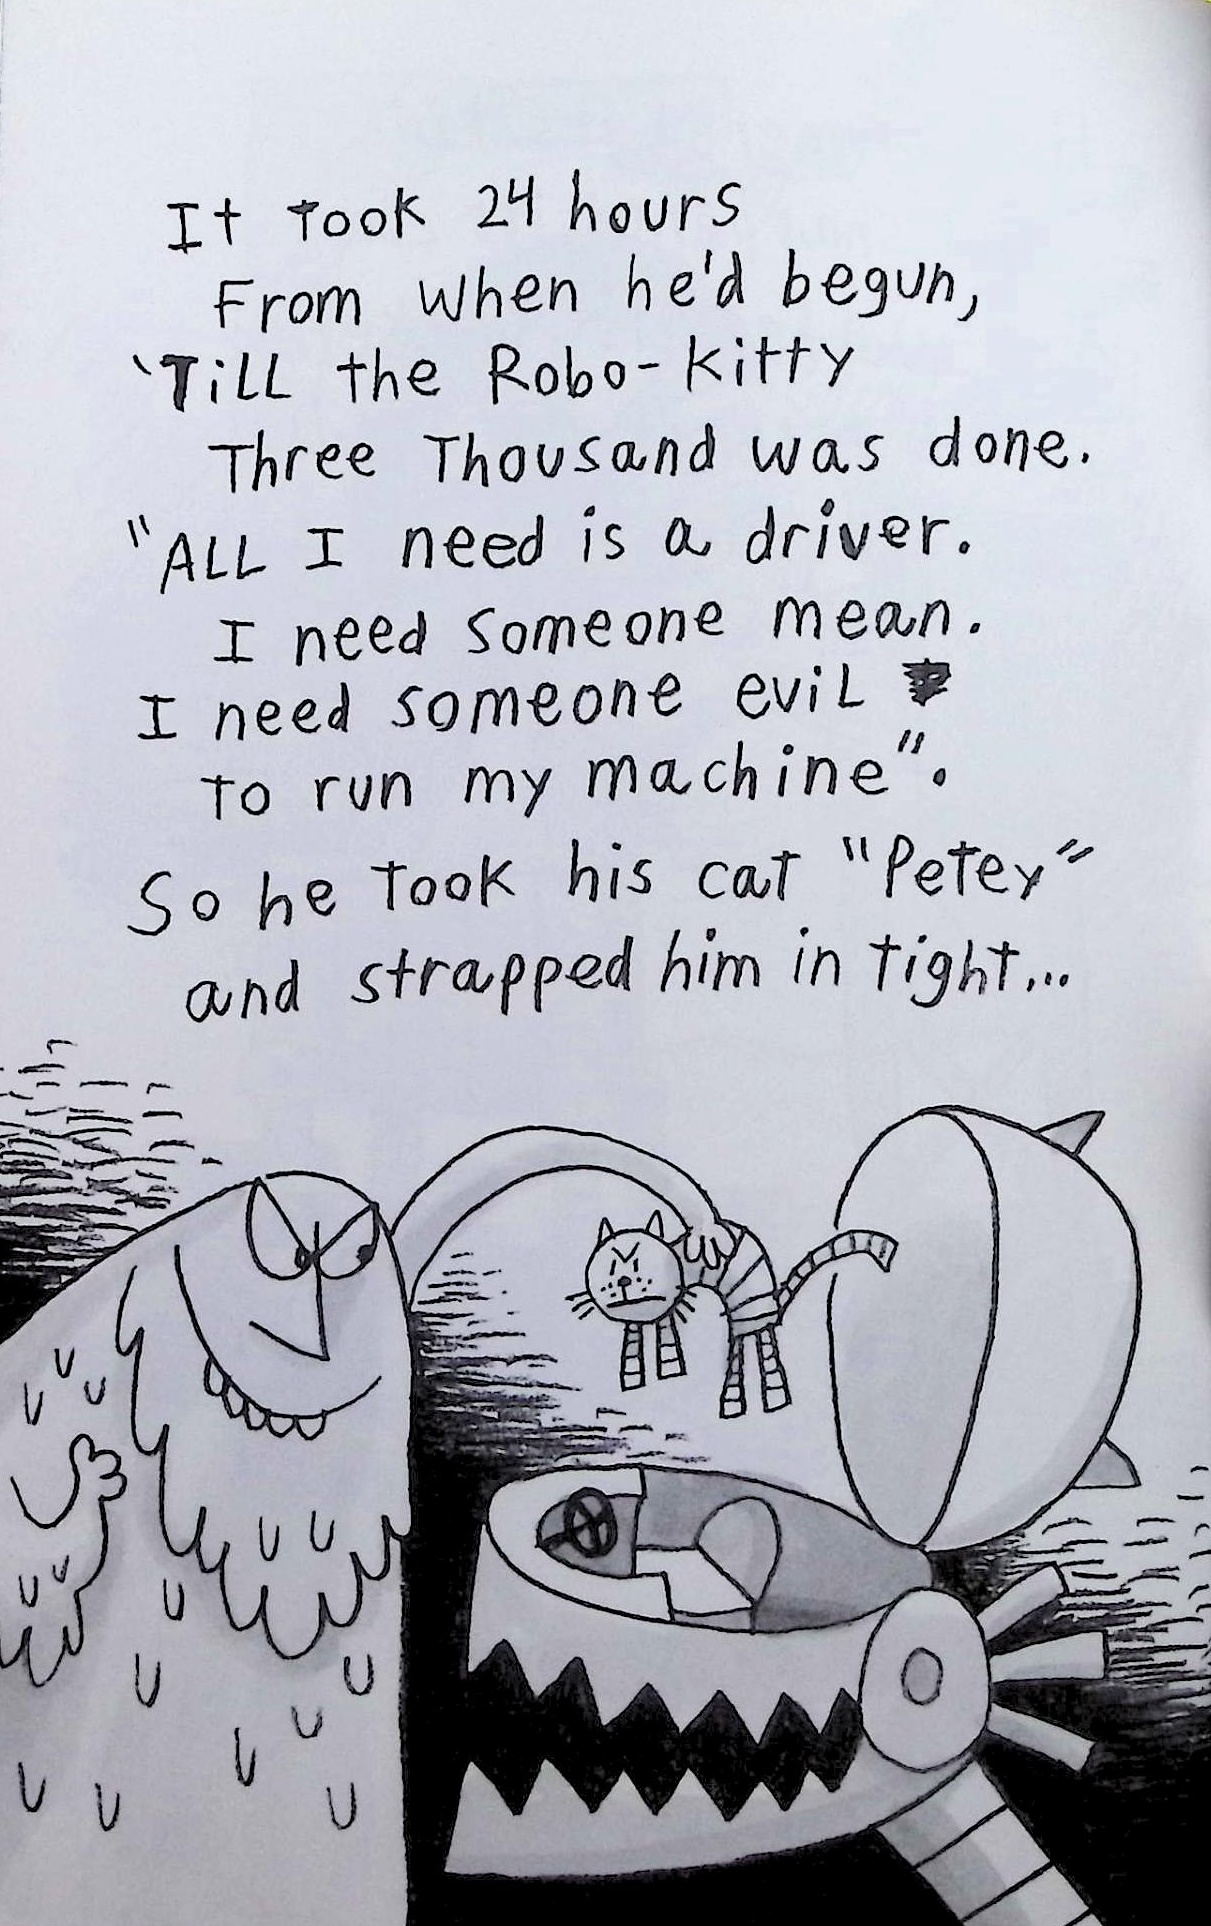 It Took 24 hours
From when he'd begun,
'TiLL the Robo-Kitty
Three Thousand was done.
"ALL I need is a driver.
I need someone mean.
I need someone eviL
To run my machine".
So he Took his cat "Petey"
and strapped him in tight...